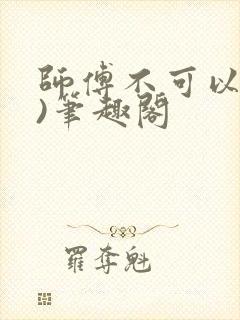 師傅不可以
)筆趣閣
羅奪魁